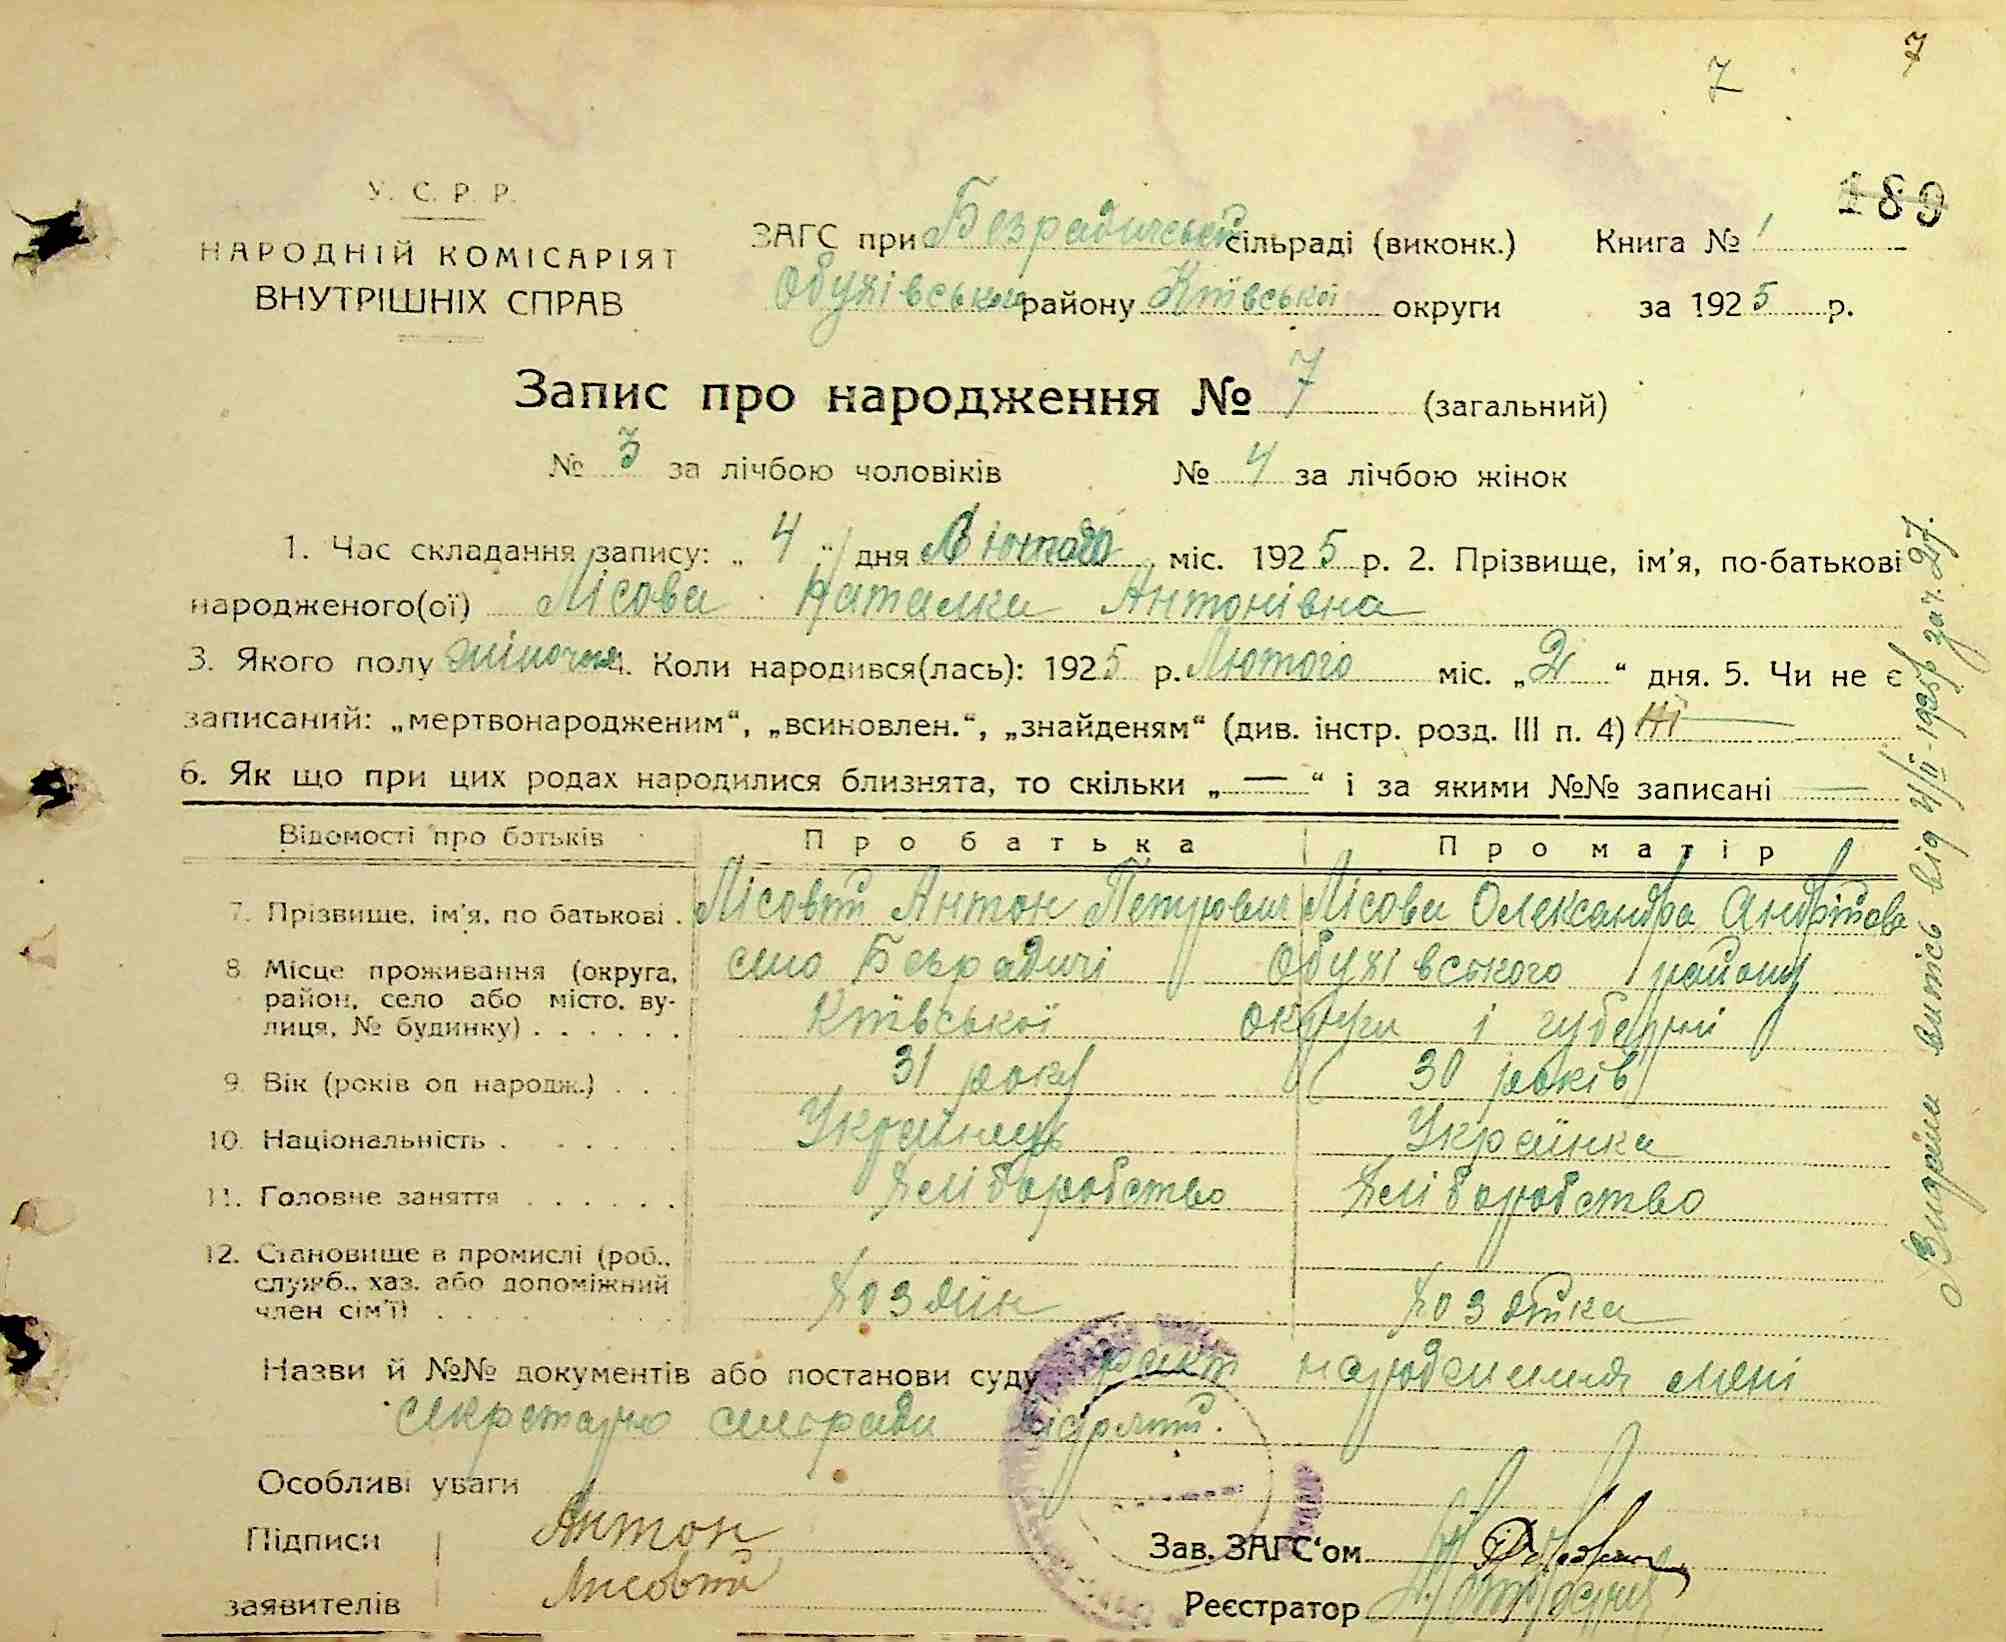 7
7
189
У. С. Р. Р.
НАРОДНІЙ КОМІСАРІЯТ
ВНУТРІШНІХ СПРАВ
ЗАГС при Безрадичській сільраді (виконк.) Книга № 1
Обухівського району Київської округи за 1925 р.
Запис про народження № 7 (загальний)
№ 3 за лічбою чоловіків № 4 за лічбою жінок
1. Час складання запису: „ 4 “ дня Лютого міс. 1925 р. 2. Прізвище, ім'я, по-батькові
народженого(ої) Лісова Наталка Антонівна
3. Якого полу жіночого 4. Коли народився(лась): 1925 р. Лютого міс. „ 2 “ дня. 5. Чи не є
записаний: „мертвонародженим“, „всиновлен.“, „знайденям“ (див. інстр. розд. III п. 4) Ні
6. Як що при цих родах народилися близнята, то скільки „ — “ і за якими №№ записані —
Відомості про батьків Про батька Про матір
7. Прізвище, ім'я, по батькові . Лісовий Антон Петрович Лісова Олександра Андріївна
8. Місце проживання (округа, село Безрадичі Обухівського району
район, село або місто, ву-
лиця, № будинку) . . . . . . Київської округи і губерні
9. Вік (років од народж.) . . . 31 року 30 років
10. Національність . . . . . Українець Українка
11. Головне заняття . . . . . . Хліборобство Хліборобство
12. Становище в промислі (роб.,
служб., хаз. або допоміжний
член сім'ї) . . . . . . . . Хозяїн Хозяйка
Назви й №№ документів або постанови суду факт народження мені
секретарю сельради відомий.
Особливі уваги
Підписи Антон
заявителів Лисовий
Зав. ЗАГС'ом
Реєстратор
Видано витяг від 4/II-1925р за ч. 27.